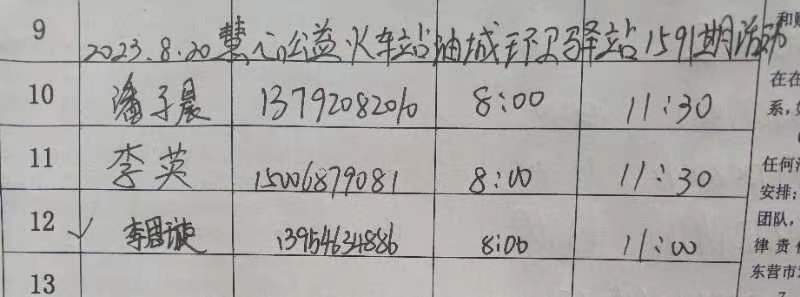 9 2023.8.20慧心公益火车站油城环卫驿站1591期活动
10 潘子晨 13792082010 8:00 11:30
11 李英 15006879081 8:00 11:30
12 ✓ 李思璇 13954634886 8:00 11:00
13
和
在在
系,
任何
安排;
团队,
律 责 任
东营市
7